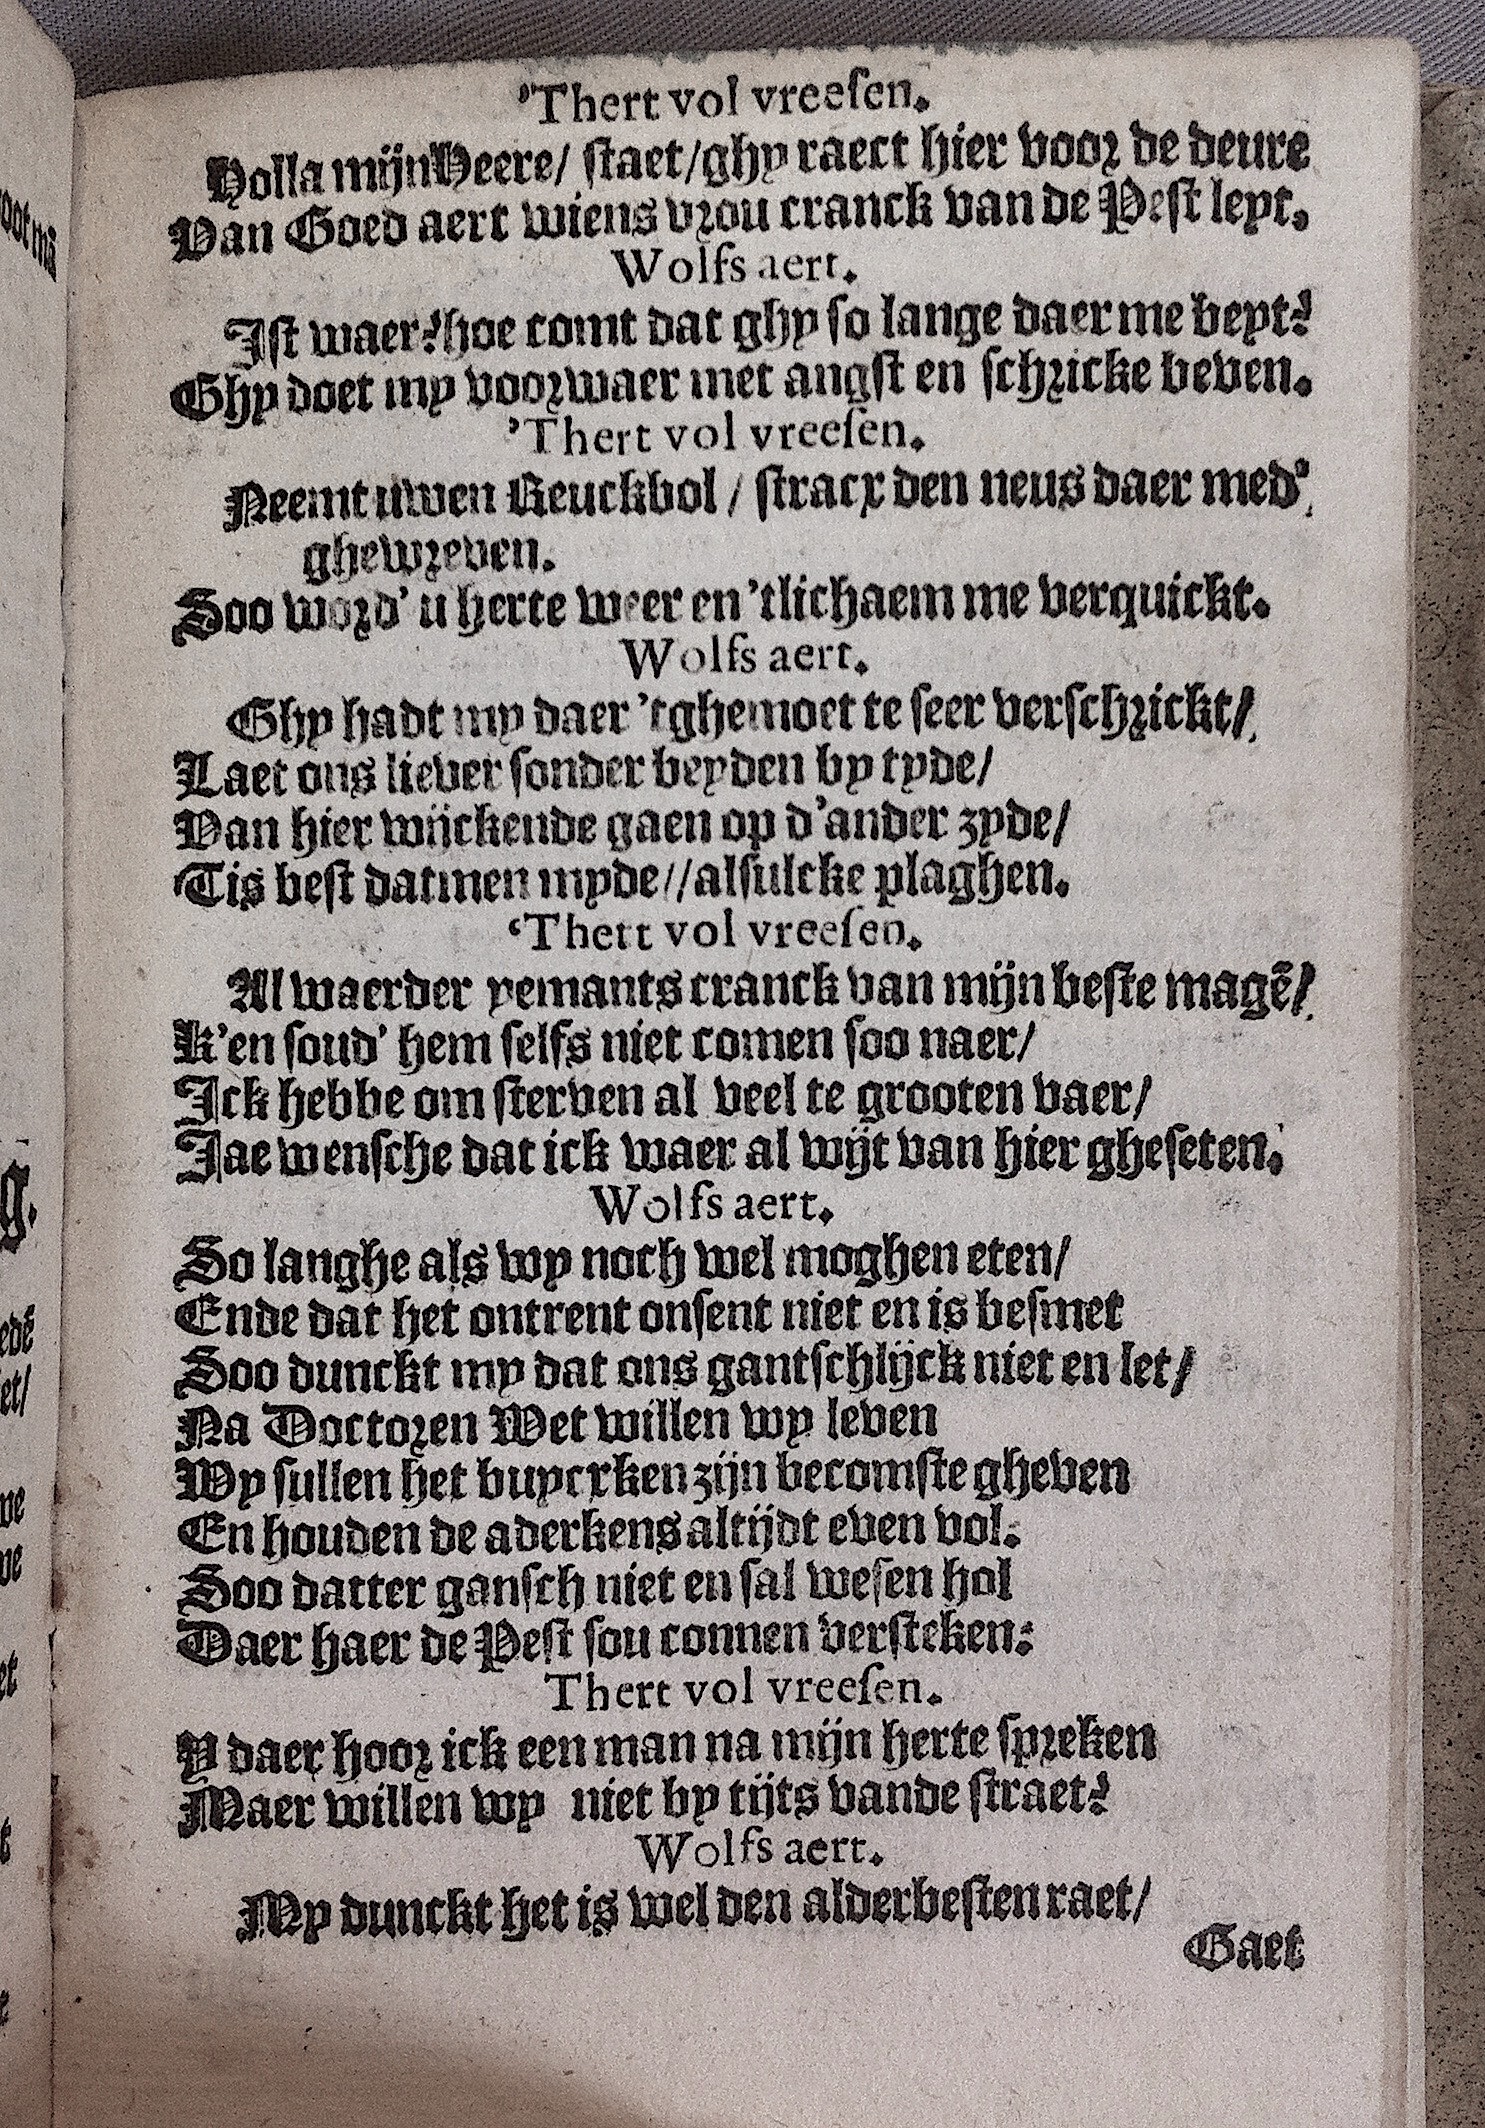 'Thert vol vreesen.
Holla mijn Heere/ staet/ ghy raect hier voor de deure
Van Goed aert wiens vrou cranck van de Pest leyt.
Wolfs aert.
Ist waer? hoe comt dat ghy so lange daer me beyt?
Ghy doet my voorwaer met angst en schricke beven.
'Thert vol vreesen.
Neemt uwen Reuckbol / stracx den neus daer med'
ghewreven.
Soo word' u herte weer en 'tlichaem me verquickt.
Wolfs aert.
Ghy hadt my daer 'tghemoet te seer verschrickt/
Laet ons liever sonder beyden by tyde/
Van hier wijckende gaen op d'ander zyde/
'Tis best datmen myde// alsulcke plaghen.
'Thert vol vreesen.
Al waerder yemants cranck van mijn beste magē/
K'en soud' hem selfs niet comen soo naer/
Ick hebbe om sterven al veel te grooten vaer/
Jae wensche dat ick waer al wijt van hier gheseten.
Wolfs aert.
So langhe als wy noch wel moghen eten/
Ende dat het ontrent onsent niet en is besmet
Soo dunckt my dat ons gantschlijck niet en let/
Na Doctoren Wet willen wy leven
Wy sullen het buycxken zijn becomste gheven
En houden de aderkens altijdt even vol.
Soo datter gansch niet en sal wesen hol
Daer haer de Pest sou connen versteken:
Thert vol vreesen.
Y daer hoor ick een man na mijn herte spreken
Maer willen wy niet by tijts vande straet?
Wolfs aert.
My dunckt het is wel den alderbesten raet/
Gaet